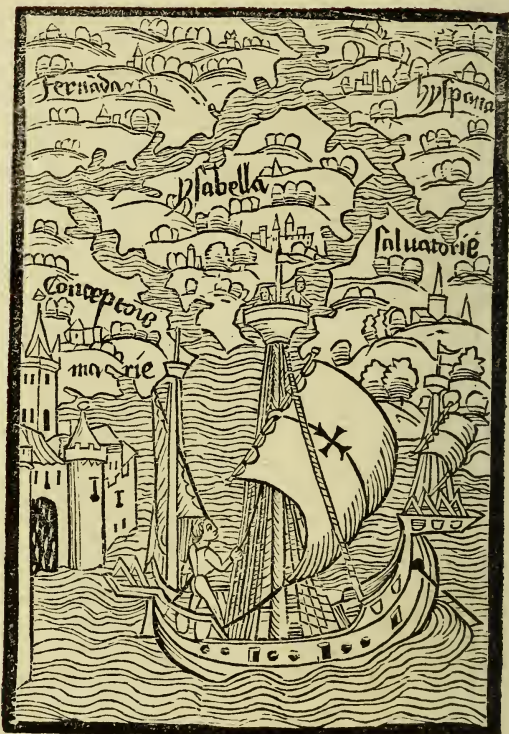 Fernãda
hyspana
ysabella
saluatorie
Conceptoĩe
marie